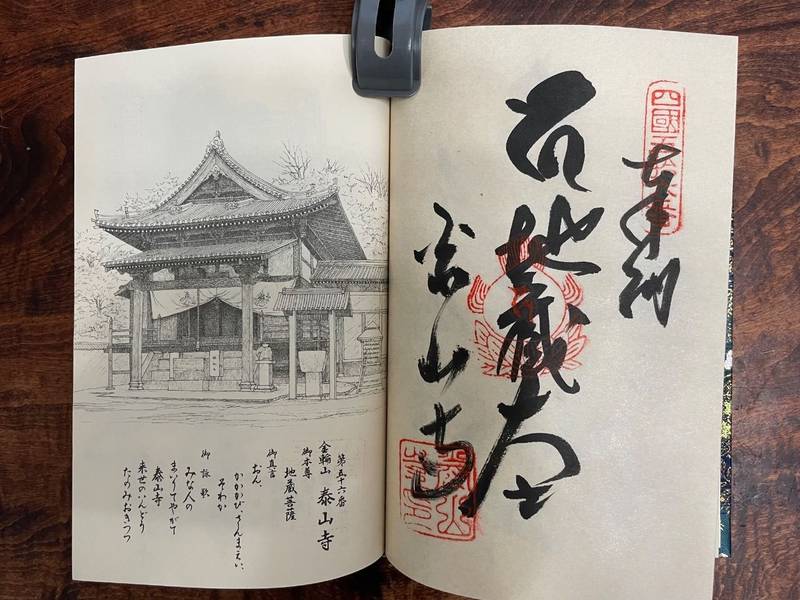 四國五十六番
奉納
地蔵大士
泰山寺
第五十六番
金輪山 泰山寺
御本尊
地蔵菩薩
御真言
おん、
かかかび、さんまえい、
そわか
御詠歌
みな人の
まいりてやがて
泰山寺
来世のいんどう
たのみおきつつ